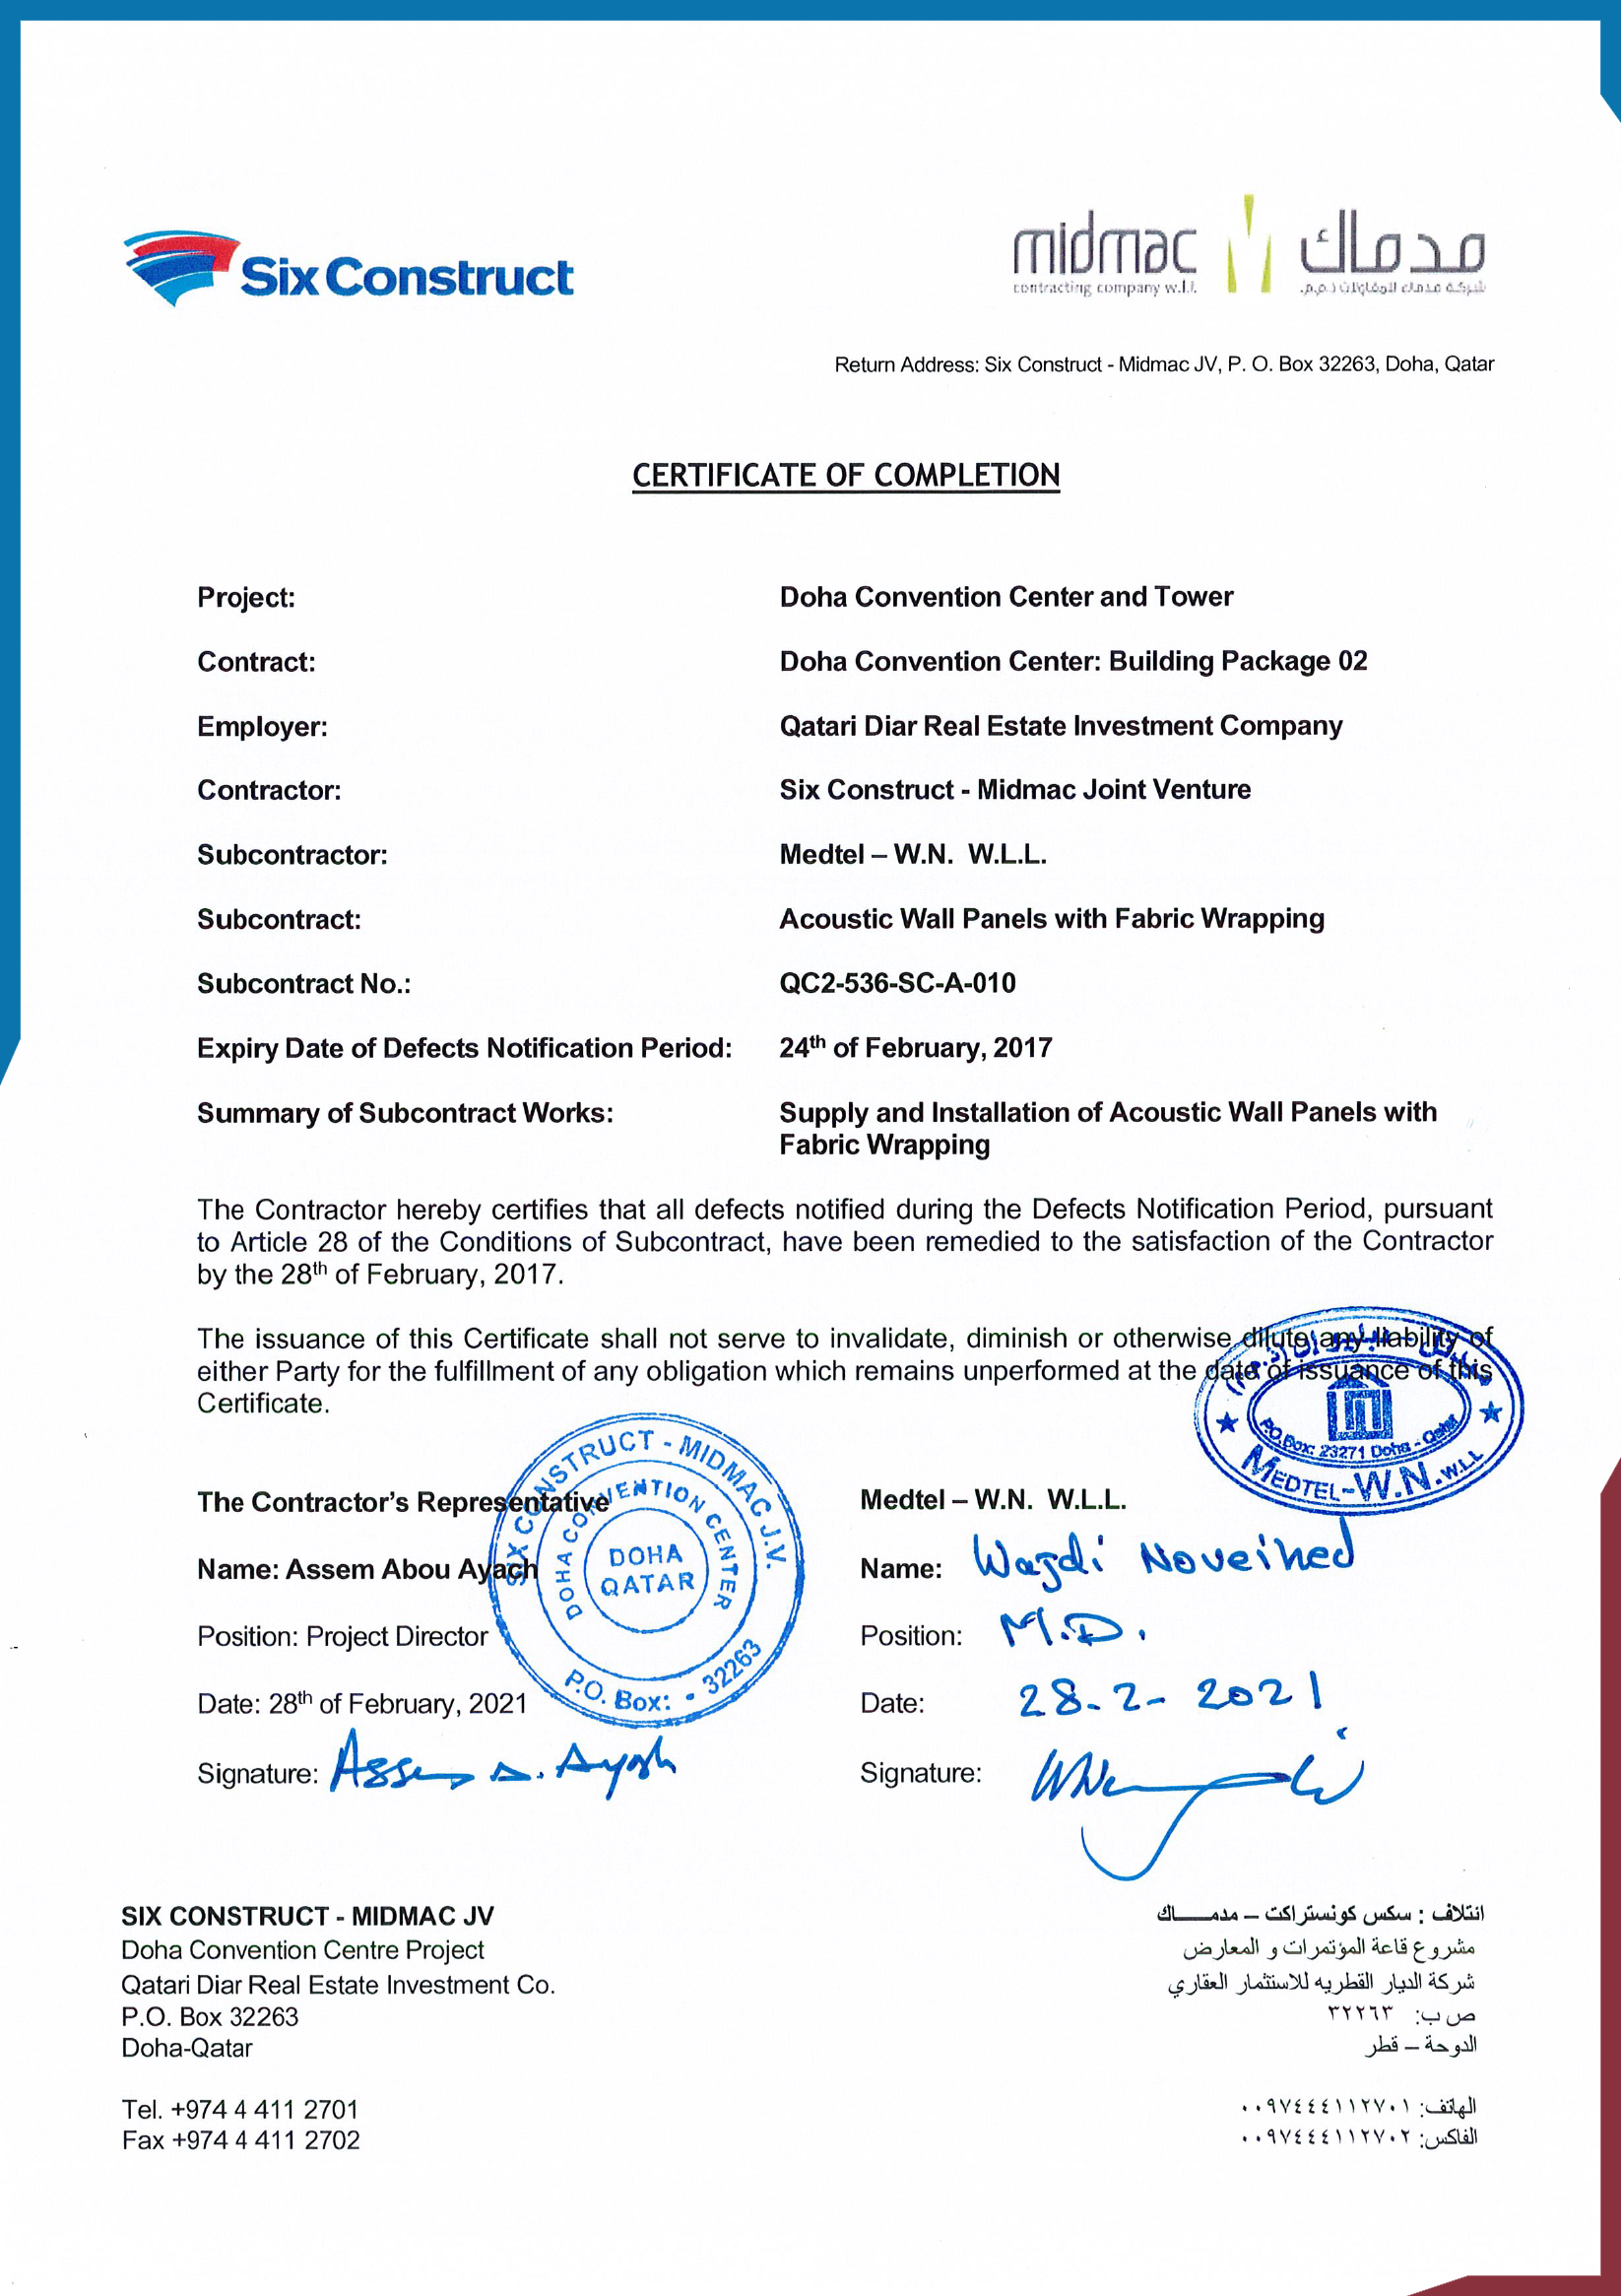 Six Construct
midmac
contracting company w.l.l.
مدماك
شركة مدماك للمقاولات ذ.م.م.
Return Address: Six Construct - Midmac JV, P. O. Box 32263, Doha, Qatar
CERTIFICATE OF COMPLETION
Project: Doha Convention Center and Tower
Contract: Doha Convention Center: Building Package 02
Employer: Qatari Diar Real Estate Investment Company
Contractor: Six Construct - Midmac Joint Venture
Subcontractor: Medtel – W.N. W.L.L.
Subcontract: Acoustic Wall Panels with Fabric Wrapping
Subcontract No.: QC2-536-SC-A-010
Expiry Date of Defects Notification Period: 24th of February, 2017
Summary of Subcontract Works: Supply and Installation of Acoustic Wall Panels with
Fabric Wrapping
The Contractor hereby certifies that all defects notified during the Defects Notification Period, pursuant
to Article 28 of the Conditions of Subcontract, have been remedied to the satisfaction of the Contractor
by the 28th of February, 2017.
The issuance of this Certificate shall not serve to invalidate, diminish or otherwise dilute any liability of
either Party for the fulfillment of any obligation which remains unperformed at the date of issuance of this
Certificate.
P.O.Box: 23271 Doha - Qatar
MEDTEL-W.N. W.L.L
The Contractor's Representative
Name: Assem Abou Ayach
Position: Project Director
Date: 28th of February, 2021
Signature: Assem A. Ayash
SIX CONSTRUCT - MIDMAC J.V.
DOHA CONVENTION CENTER
DOHA
QATAR
P.O. Box: - 32263
Medtel – W.N. W.L.L.
Name: Wagdi Noveihed
Position: M.D.
Date: 28-2-2021
Signature:
SIX CONSTRUCT - MIDMAC JV
Doha Convention Centre Project
Qatari Diar Real Estate Investment Co.
P.O. Box 32263
Doha-Qatar
Tel. +974 4 411 2701
Fax +974 4 411 2702
ائتلاف : سكس كونستراكت – مدمـــاك
مشروع قاعة المؤتمرات و المعارض
شركة الديار القطريه للاستثمار العقاري
ص ب: ٣٢٢٦٣
الدوحة – قطر
الهاتف: ٠٠٩٧٤٤٤١١٢٧٠١
الفاكس: ٠٠٩٧٤٤٤١١٢٧٠٢